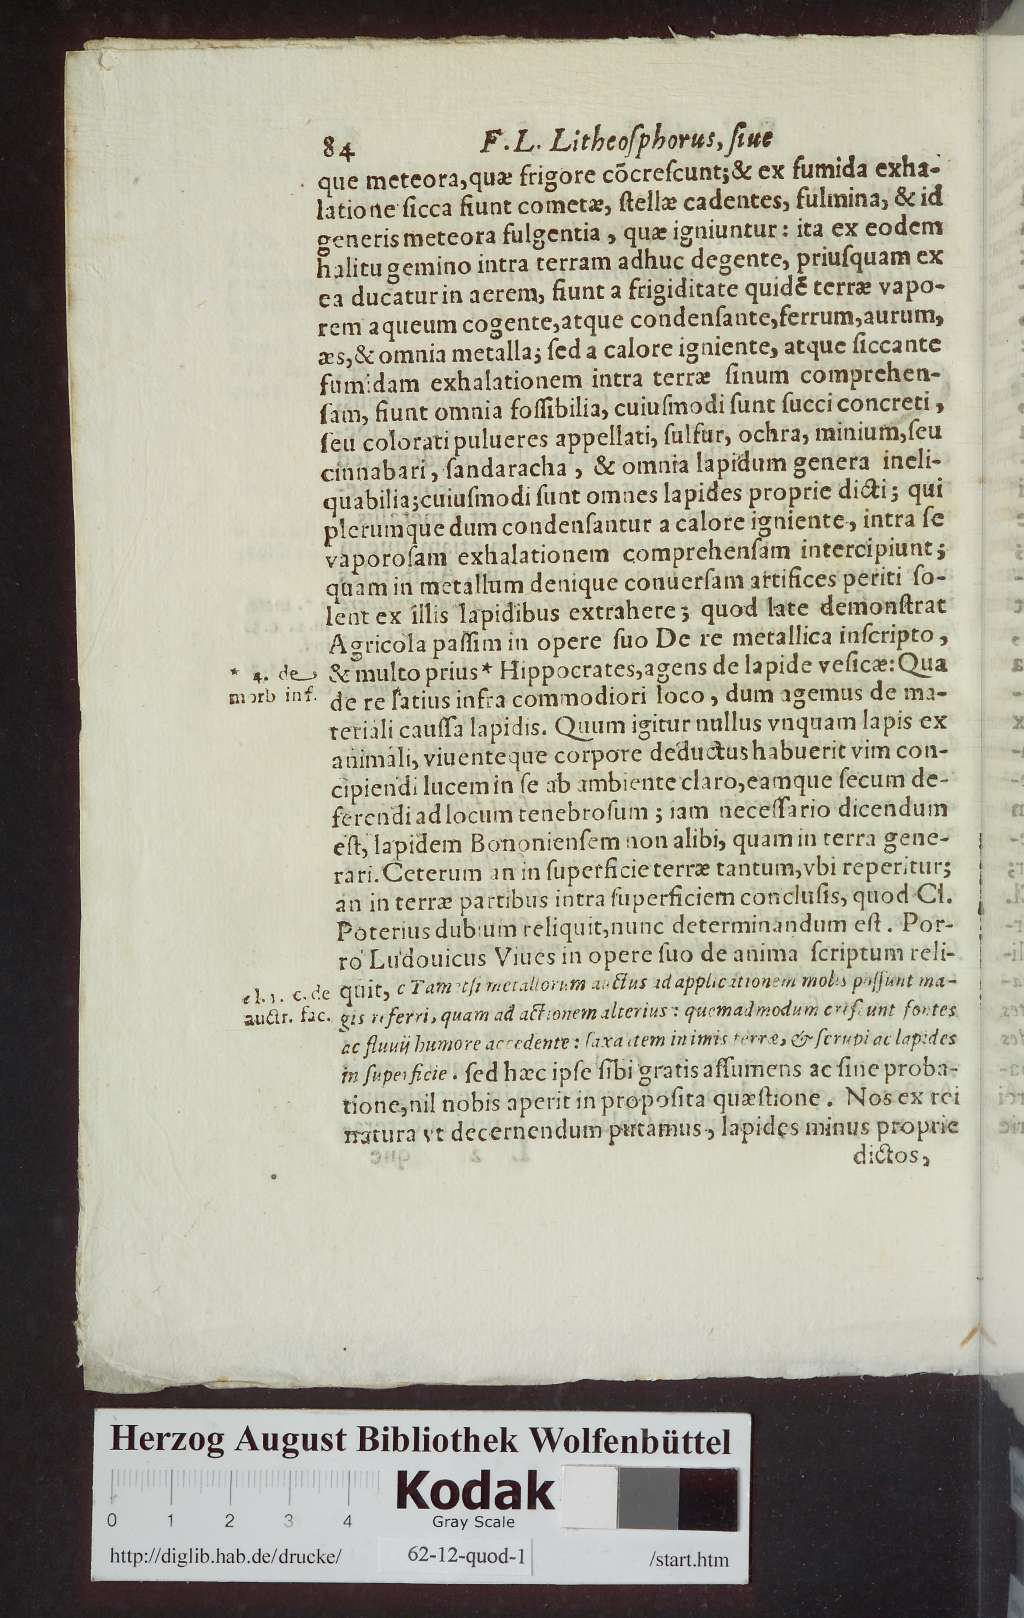 84 F. L. Litheosphorus, siue
que meteora, quæ frigore cõcrescunt; & ex fumida exha-
latione sicca fiunt cometæ, stellæ cadentes, fulmina, & id
generis meteora fulgentia, quæ igniuntur: ita ex eodem
halitu gemino intra terram adhuc degente, priusquam ex
ea ducatur in aerem, fiunt a frigiditate quidē terræ vapo-
rem aqueum cogente, atque condensante, ferrum, aurum,
æs, & omnia metalla; sed a calore igniente, atque siccante
fumidam exhalationem intra terræ sinum comprehen-
sam, fiunt omnia fossibilia, cuiusmodi sunt succi concreti,
seu colorati pulueres appellati, sulfur, ochra, minium, seu
cinnabari, sandaracha, & omnia lapidum genera ineli-
quabilia; cuiusmodi sunt omnes lapides proprie dicti; qui
plerumque dum condensantur a calore igniente, intra se
vaporosam exhalationem comprehensam intercipiunt;
quam in metallum denique conuersam artifices periti so-
lent ex illis lapidibus extrahere; quod late demonstrat
Agricola passim in opere suo De re metallica inscripto,
* 4. de & multo prius * Hippocrates, agens de lapide vesicæ: Qua
morb inf. de re latius infra commodiori loco, dum agemus de ma-
teriali caussa lapidis. Quum igitur nullus vnquam lapis ex
animali, viuenteque corpore deductus habuerit vim con-
cipiendi lucem in se ab ambiente claro, eamque secum de-
ferendi ad locum tenebrosum; iam necessario dicendum
est, lapidem Bononiensem non alibi, quam in terra gene-
rari. Ceterum an in superficie terræ tantum, vbi reperitur;
an in terræ partibus intra superficiem conclusis, quod Cl.
Poterius dubium reliquit, nunc determinandum est. Por-
ro Ludouicus Viues in opere suo de anima scriptum reli-
c l. 1. c. de quit, c Tametsi metallorum auctus ad applicationem molis possunt ma-
auctr. fac. gis referri, quam ad actionem alterius: quemadmodum crescunt fontes
ac fluuij humore accedente: saxa item in imis terræ, & scrupi ac lapides
in superficie. sed hæc ipse sibi gratis assumens ac sine proba-
tione, nil nobis aperit in proposita quæstione. Nos ex rei
natura vt decernendum putamus, lapides minus proprie
dictos,
Herzog August Bibliothek Wolfenbüttel
Kodak
Gray Scale
0 1 2 3 4
http://diglib.hab.de/drucke/ 62-12-quod-1 /start.htm